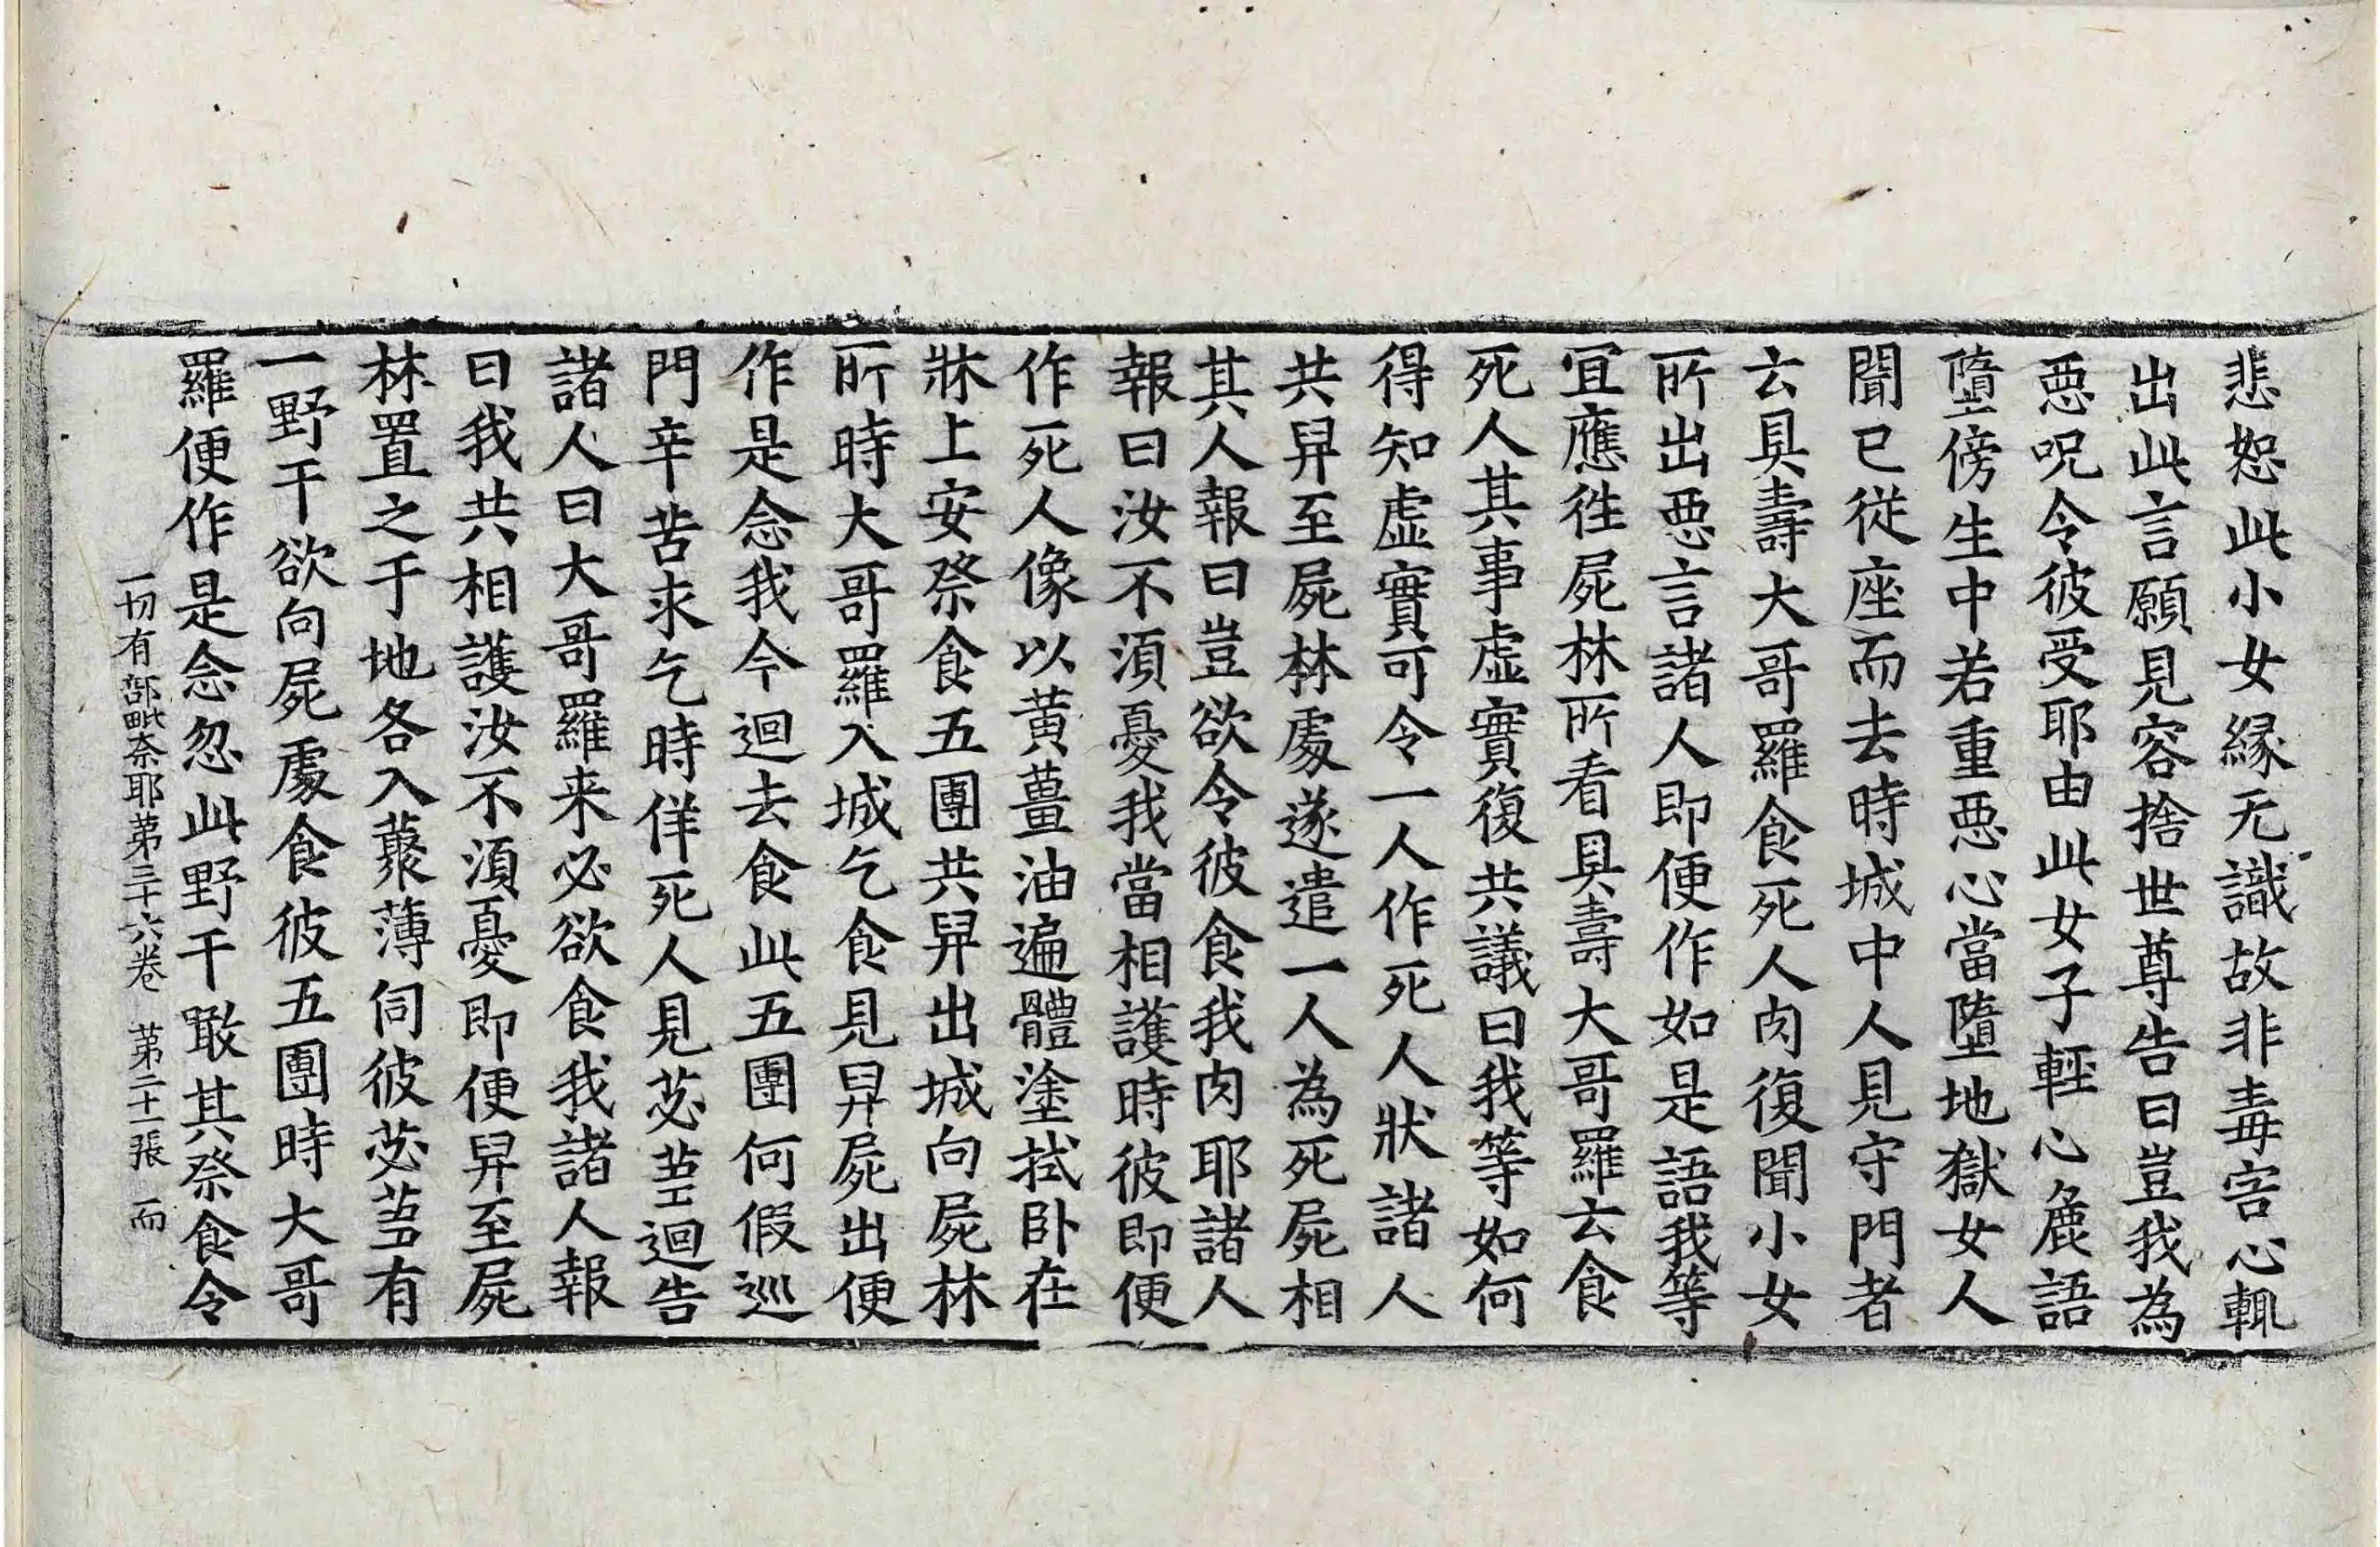 悲恕此小女縁无識故非毒害心輙
出此言願見容捨世尊告曰豈我為
惡呪令彼受耶由此女子輕心麁語
墮傍生中若重惡心當墮地獄女人
聞已從座而去時城中人見守門者
云具壽大哥羅食死人肉復聞小女
所出惡言諸人即便作如是語我等
宜應徃屍林所看具壽大哥羅云食
死人其事虛實復共議曰我等如何
得知虛實可令一人作死人狀諸人
共舁至屍林處遂遣一人為死屍相
其人報曰豈欲令彼食我肉耶諸人
報曰汝不須憂我當相護時彼即便
作死人像以黃薑油遍體塗拭卧在
牀上安祭食五團共舁出城向屍林
所時大哥羅入城乞食見舁屍出便
作是念我今迴去食此五團何假巡
門辛苦求乞時佯死人見苾蒭迴告
諸人曰大哥羅来必欲食我諸人報
曰我共相護汝不須憂即便舁至屍
林置之于地各入藂薄伺彼苾蒭有
一野干欲向屍處食彼五團時大哥
羅便作是念忽此野干敢其祭食令
一切有部毗奈耶苐三十六卷　苐二十一張　而